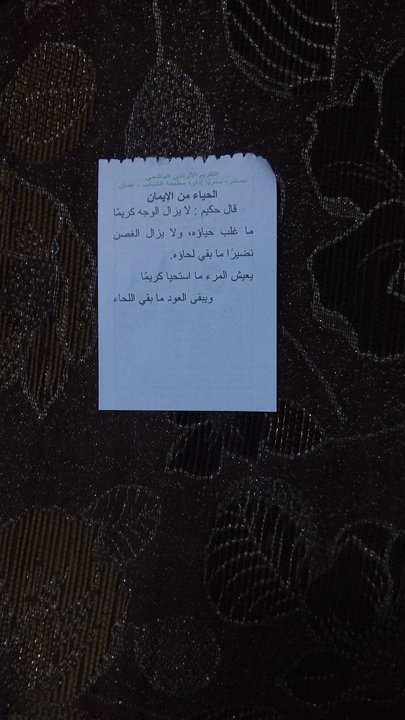 التقويم الأردني الهاشمي
تصدره سنويًا إدارة مطبعة الشباب - عمان
الحياء من الإيمان
قال حكيم : لا يزال الوجه كريمًا
ما غلب حياؤه، ولا يزال الغصن
نضيرًا ما بقي لحاؤه.
يعيش المرء ما استحيا كريمًا
ويبقى العود ما بقي اللحاء